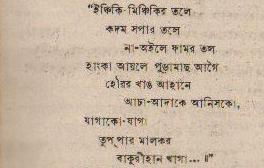 “ইঞ্চিকি-মিঞ্চিকির তলে
কদম সপার তলে
না-অইলে ফামর তল
হাংকা আয়লে পুড়ামাছ আগে
হৌরর খাঙ আহানে
আচা-আদাকে আনিসকো,
যাগাকো-যাগা
তুপ্‌পার মালকর
বাকুরীহান খাগা...॥”